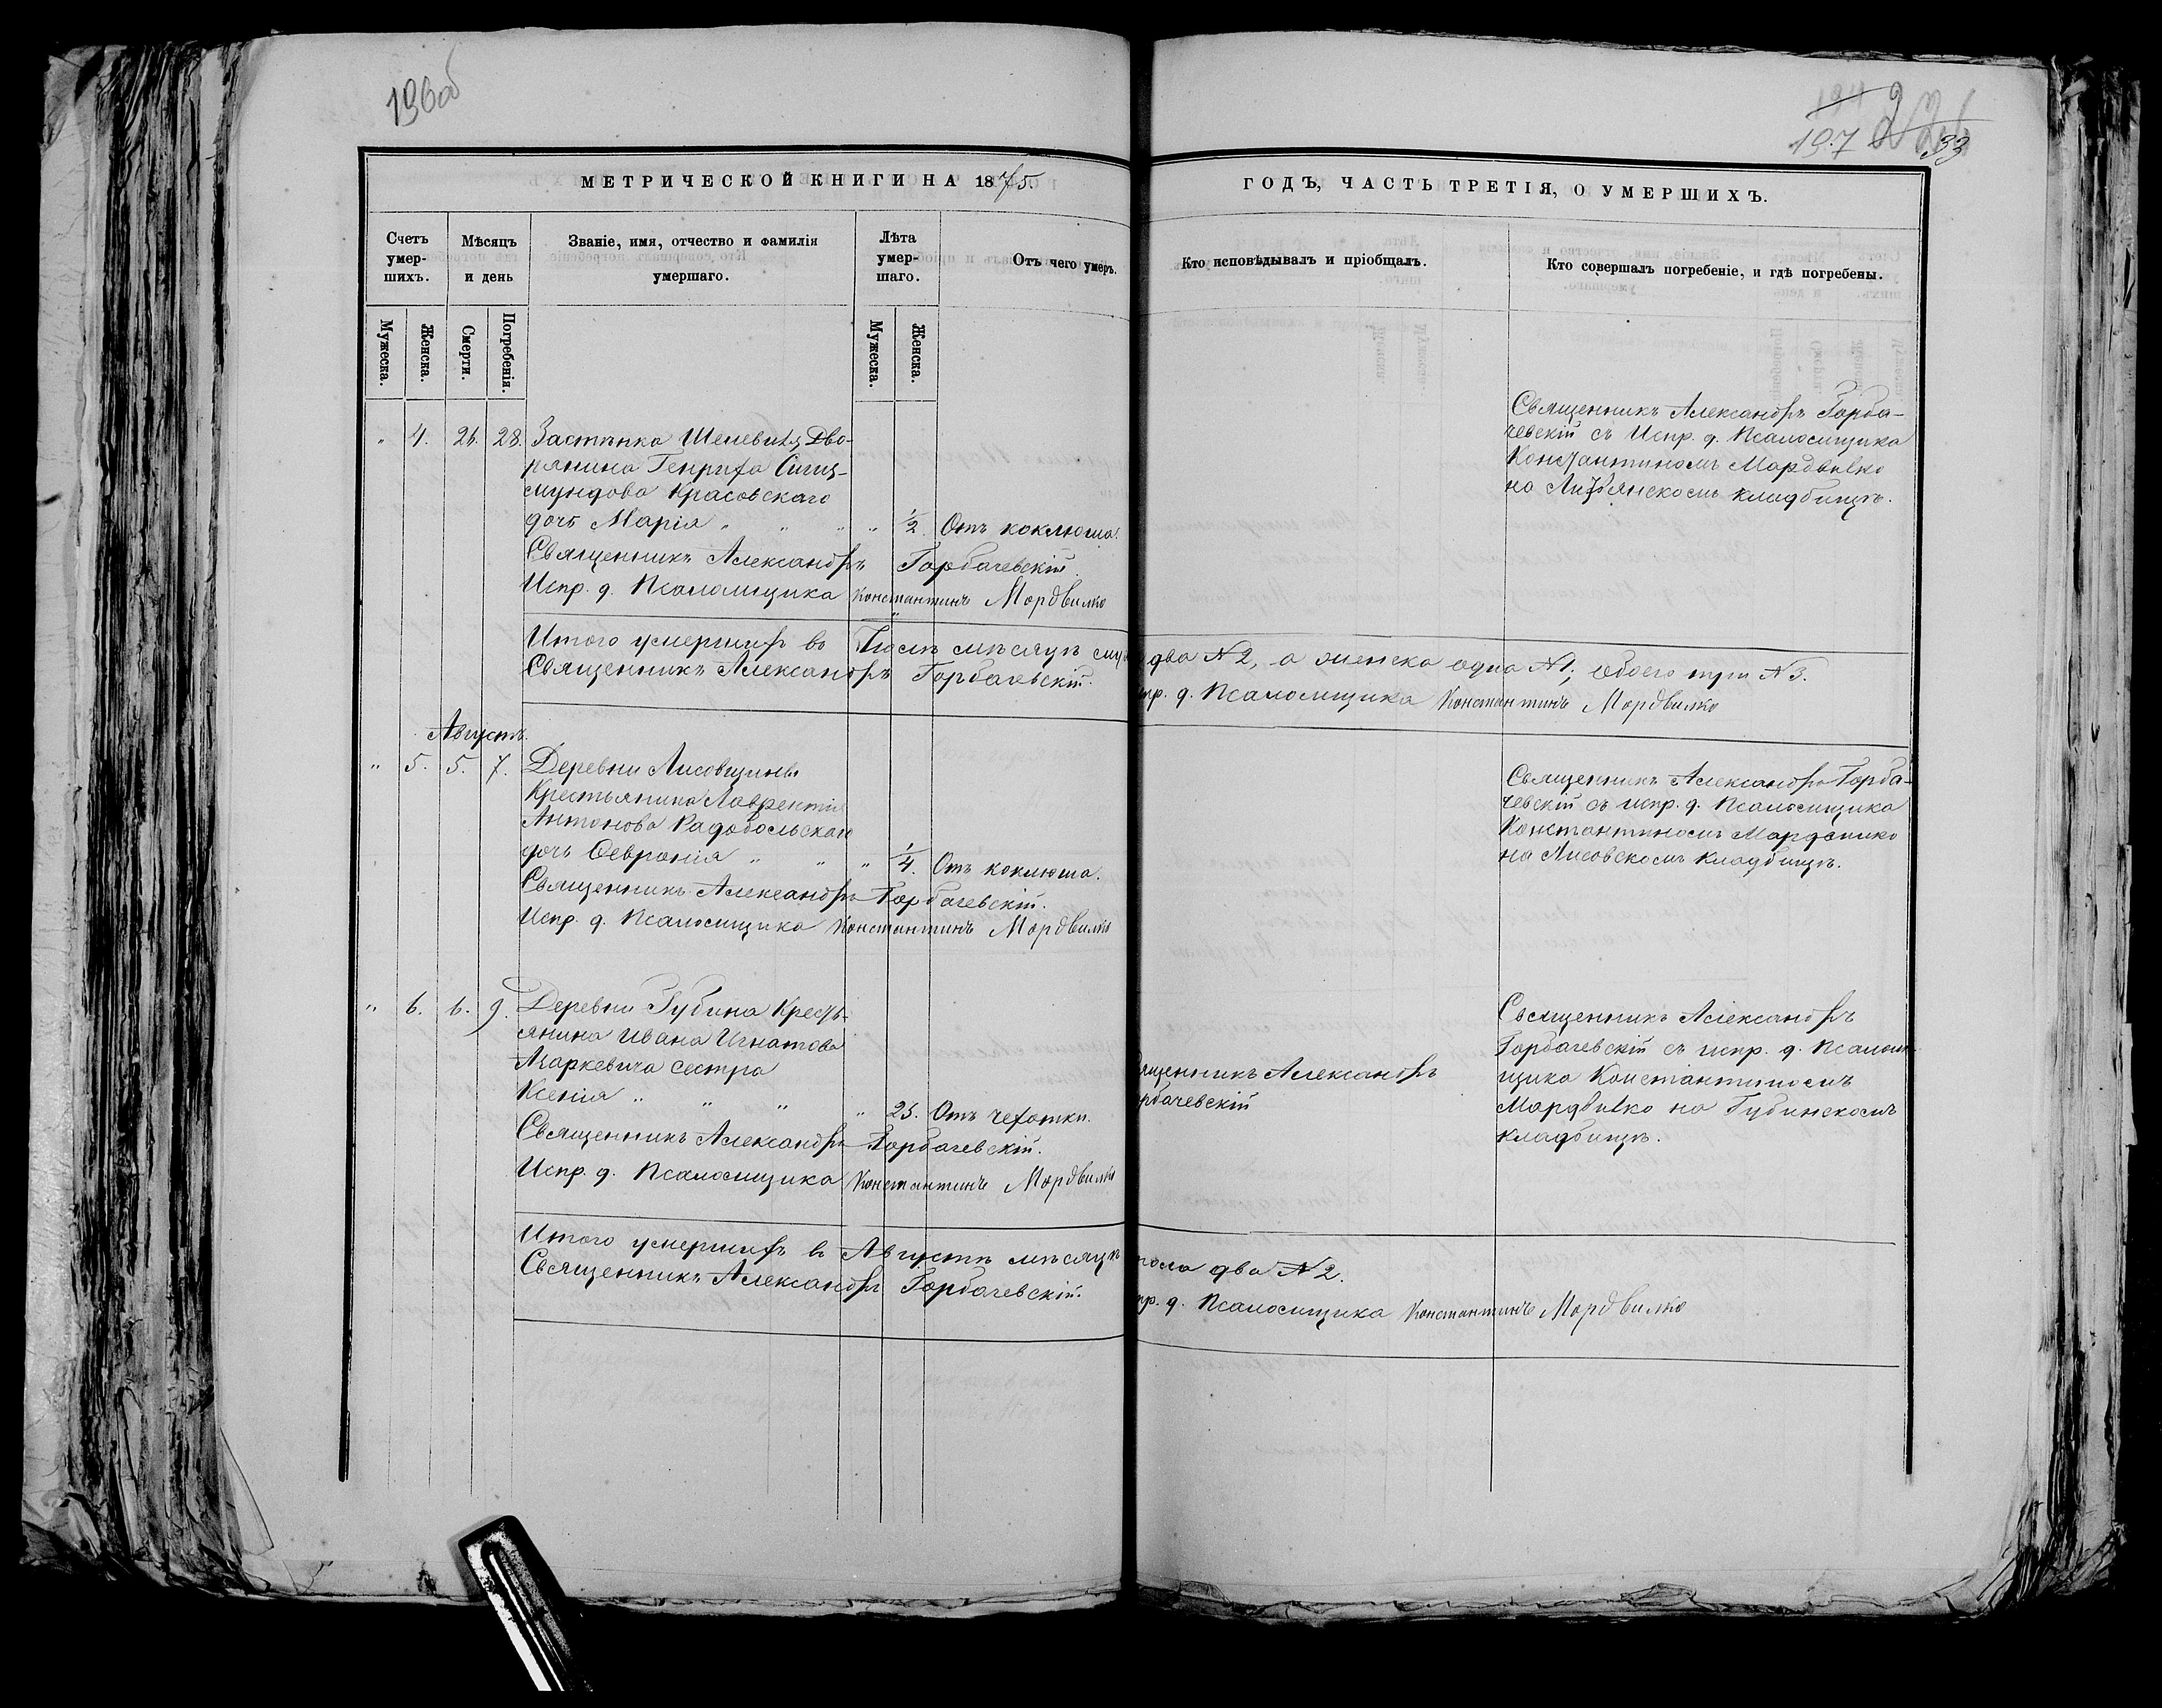 196об
197
33
МЕТРИЧЕСКОЙ КНИГИ НА 1875
ГОДЪ, ЧАСТЬ ТРЕТІЯ, О УМЕРШИХЪ.
Счетъ умер-шихъ.
Мѣсяцъ и день
Званіе, имя, отчество и фамилія умершаго.
Лѣта умер-шаго.
Отъ чего умеръ.
Кто исповѣдывалъ и пріобщалъ.
Кто совершалъ погребеніе, и гдѣ погребены.
Мужеска.
Женска.
Смерти.
Погребенія.
Мужеска.
Женска.
" 4. 26. 28. Застѣнка Шелевичъ Дво-
рянина Генриха Сигиз-
мундова Красовскаго
дочь Марія " " " " 1/2 Отъ коклюша.
Священникъ Александръ Горбачевскій.
Испр. д. Псаломщика Константинъ Мордвилко
Священникъ Александръ Горба-
чевскій съ Испр. д. Псаломщика
Константиномъ Мордвилко
на кладбищѣ.
Итого умершихъ въ Іюлѣ мѣсяцѣ муж два №2, а женска одна №1; обоего три №3.
Священникъ Александръ Горбачевскій.
пр. д. Псаломщика Константинъ Мордвилко
Августъ.
" 5. 5. 7. Деревни Лисовщины
Крестьянина Лаврентія
Антонова Радобольскаго
дочь Февронія " " " 1/4. Отъ коклюша.
Священникъ Александръ Горбачевскій.
Испр. д. Псаломщика Константинъ Мордвилко
Священникъ Александръ Горба-
чевскій съ испр. д. Псаломщика
Константиномъ Мордвилко
на Лисовскомъ кладбищѣ.
" 6. 6. 9. Деревни Губина Кресть-
янина Ивана Игнатова
Маркевича сестра
Ксенія " " " " 25. Отъ чехотки.
Священникъ Александръ Горбачевскій.
Испр. д. Псаломщика Константинъ Мордвилко
ященникъ Александръ
рбачевскій
Священникъ Александръ
Горбачевскій съ испр. д. Псалом-
щика Константиномъ
Мордвилко на Губинскомъ
кладбищѣ.
Итого умершихъ въ Августѣ мѣсяцѣ пола два №2.
Священникъ Александръ Горбачевскій.
пр. д. Псаломщика Константинъ Мордвилко